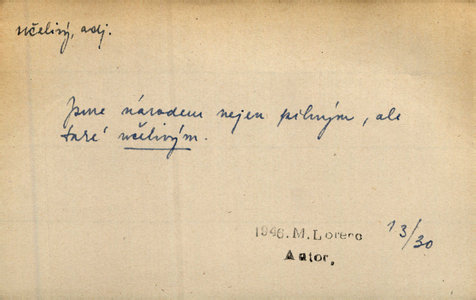 učelivý, adj.
Jsme národem nejen pilným, ale
také učelivým.
1946. M. Lorenc 13/30
Autor.